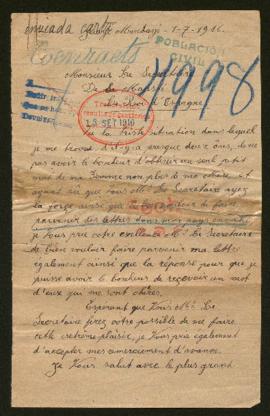 enviada carta
1-7-1916.
POBLACIÓN
CIVIL
4998
Monsieur Le Secrétaire
De sa Majesté
d'Espagne
15 SET 1916
Vu la triste situation dans lequel
je me trouve d'il y a presque deux ans, de ne
pas avoir le bonheur d'obtenir un seul petit
mot de ma femme non plus de ma chère et
ayant sue que vous Mr. Le Secrétaire ayez
la force ainsi que l'honneur de faire
parvenir des lettres dans mon pays envahi,
je vous prie votre exellence Mr. Le Secrétaire
de bien vouloir faire parvenir ma lettre
également ainsi que la réponse pour que je
puisse avoir le bonheur de recevoir un mot
d'eux qui me sont chères.
Espérant que Vous Mr. Le
Secrétaire firez votre possible de me faire
cette extrème plaisir, je Vous prie également
d'accepter mes remerciement d'avance.
Je Vous salut avec le plus grant